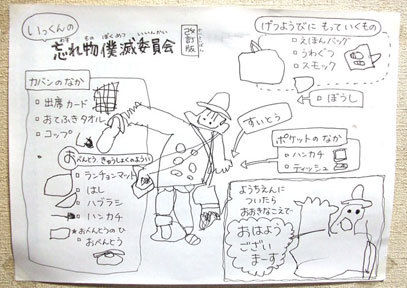 いっくんの
忘れ物撲滅委員会
わす もの ぼくめつ いいんかい
改訂版
げつようびに もっていくもの
えほんバッグ
うわぐつ
スモック
ぼうし
カバンのなか
出席カード
おてふきタオル
コップ
すいとう
ポケットのなか
ハンカチ
ティッシュ
おべんとう きゅうしょくのようい
ランチョンマット
はし
ハブラシ
ハンカチ
★おべんとうのひ
おべんとう
ようちえんに
ついたら
おおきなこえで
おはよう
ござい
まーす